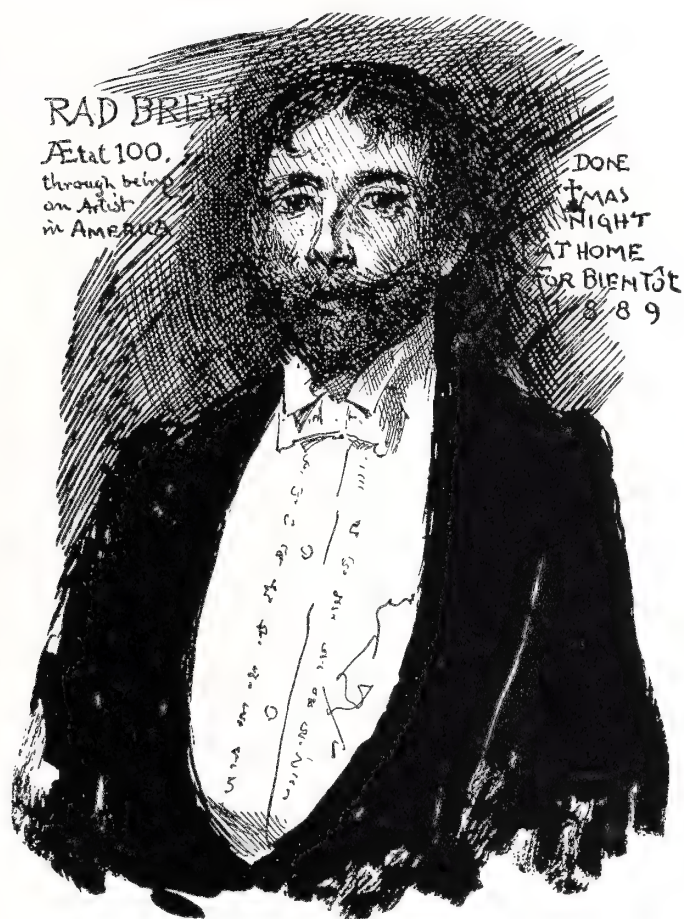 RAD BREH
Ætat 100.
through being
an Artist
in AMERICA
DONE
MAS
NIGHT
AT HOME
FOR BIENTÔT
1889